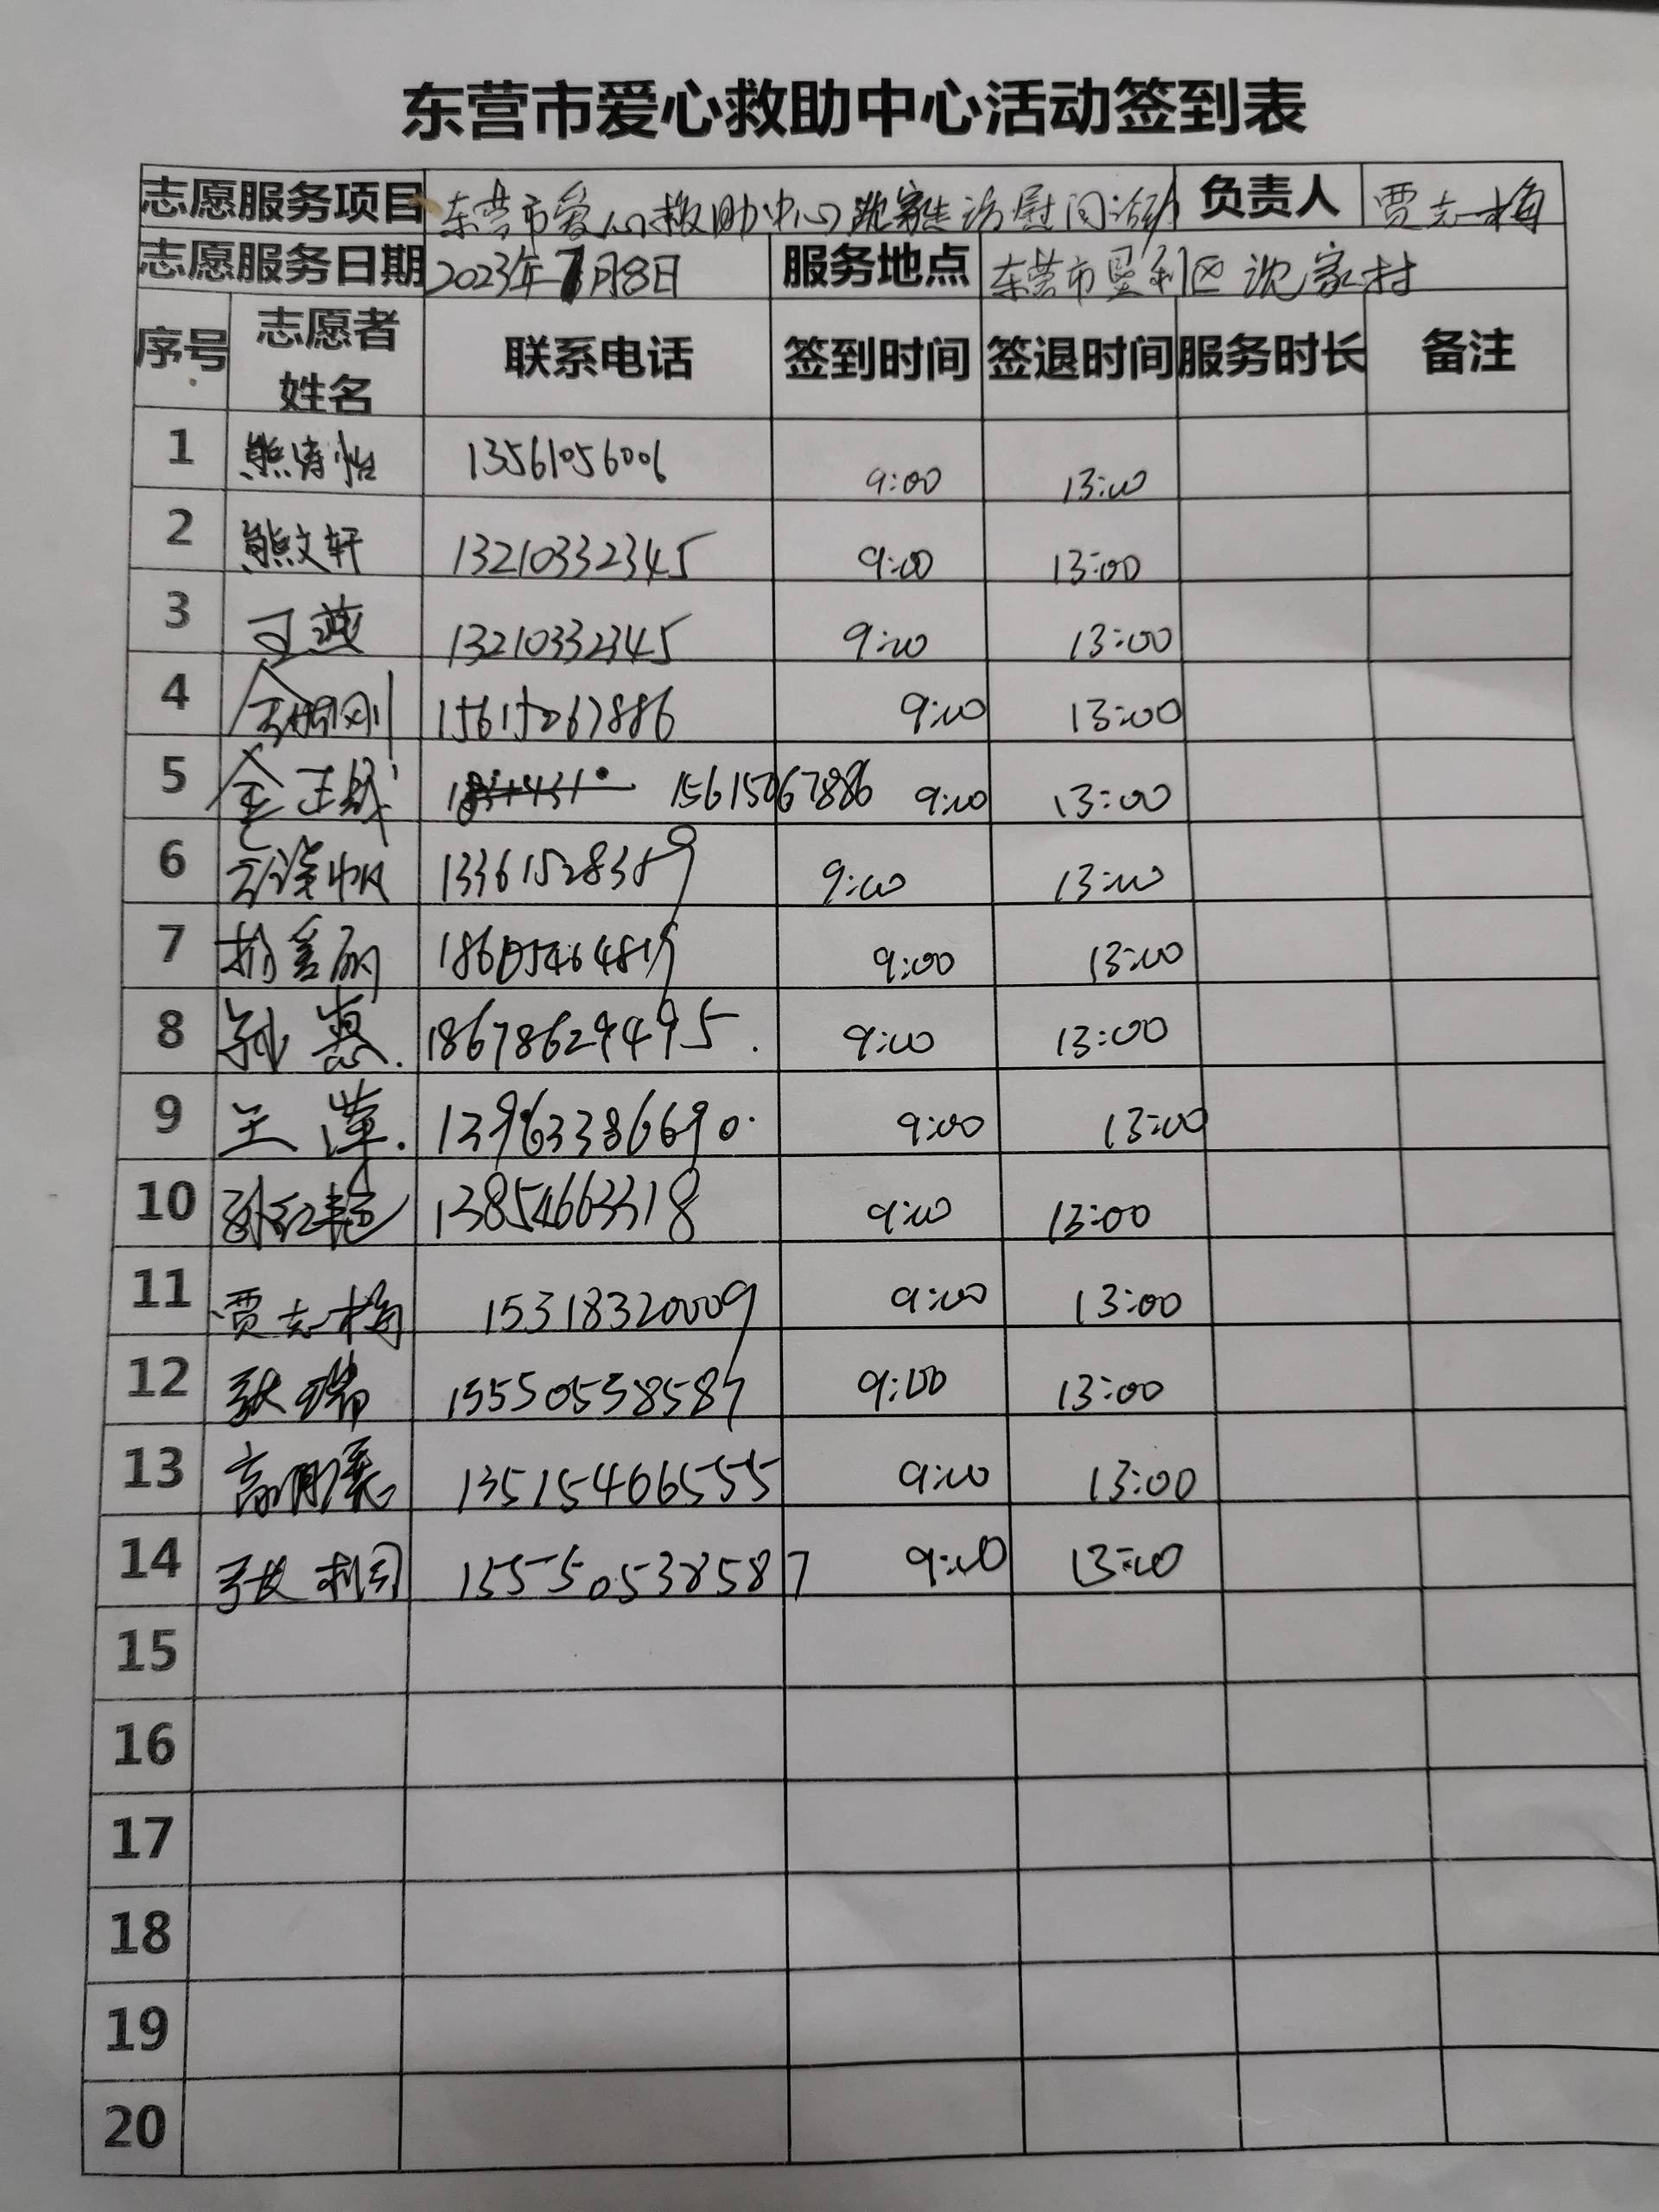 东营市爱心救助中心活动签到表
志愿服务项目 东营市爱心救助中心 走访慰问活动 负责人 贾志梅
志愿服务日期 2023年7月8日 服务地点 东营市垦利区沈家村
序号 志愿者姓名 联系电话 签到时间 签退时间 服务时长 备注
1 熊诗怡 13561056006 9:00 13:00
2 熊文轩 13210332345 9:00 13:00
3 13210332345 9:00 13:00
4 15615067886 9:00 13:00
5 15615067886 9:00 13:00
6 9:00 13:00
7 9:00 13:00
8 孙惠. 18678629495. 9:00 13:00
9 王萍. 13963386690. 9:00 13:00
10 孙红艳 13854663318 9:00 13:00
11 贾志梅 15318320009 9:00 13:00
12 张瑞 15550538587 9:00 13:00
13 13515466555 9:00 13:00
14 15550538587 9:00 13:00
15
16
17
18
19
20